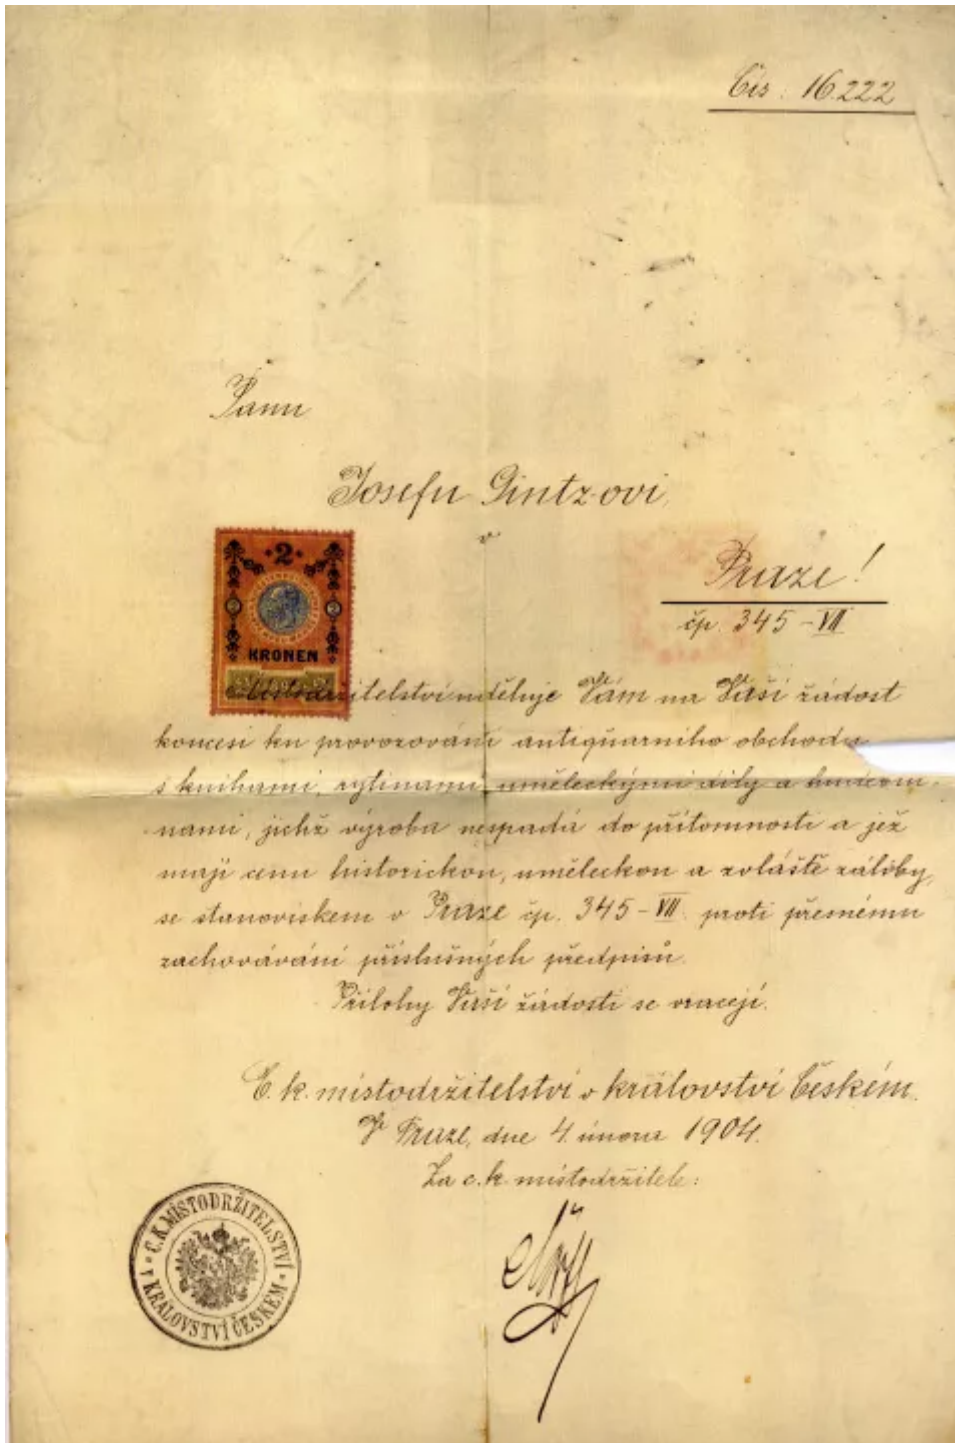 Čís: 16.222
Panu
Josefu Gintz-ovi,
v
Praze!
čp. 345–VII
2
KRONEN
Místodržitelství uděluje Vám na Vaši žádost
koncesi ku provozování antiquarního obchodu
s knihami, rytinami, uměleckými díly a
nami, jichž výroba nespadá do přítomnosti a jež
mají cenu historickou, uměleckou a zvláště záliby,
se stanoviskem v Praze čp. 345–VII proti přesnému
zachovávání příslušných předpisů.
Přílohy Vaší žádosti se vracejí.
C. k. místodržitelství v království Českém.
V Praze, dne 4. února 1904.
Za c. k. místodržitele:
C.K. MÍSTODRŽITELSTVÍ
v KRÁLOVSTVÍ ČESKÉM